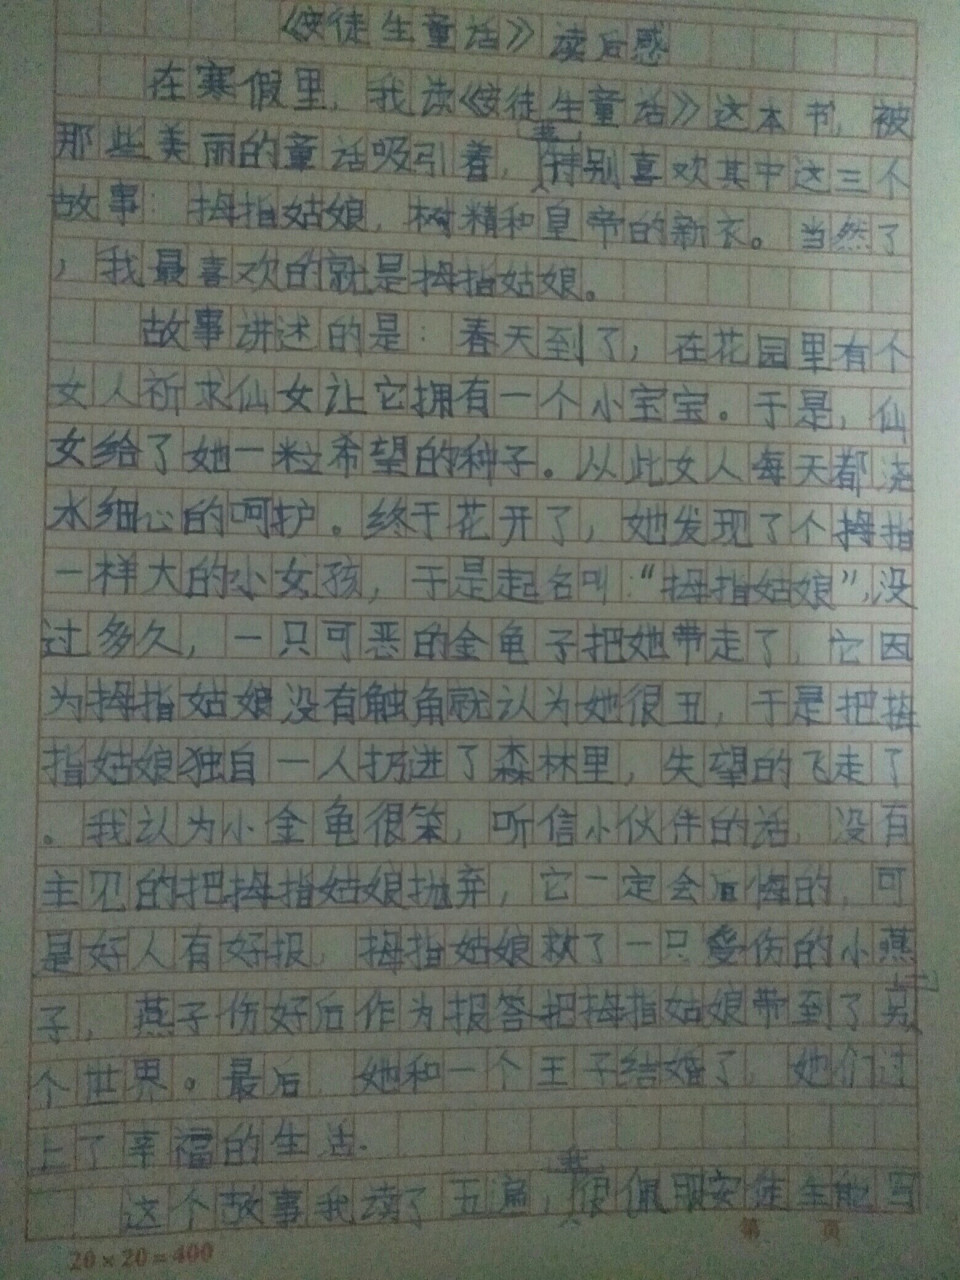 《安徒生童话》读后感
在寒假里，我读《安徒生童话》这本书，被
那些美丽的童话吸引着，我特别喜欢其中这三个
故事：拇指姑娘，树精和皇帝的新衣。当然了
，我最喜欢的就是拇指姑娘。
故事讲述的是：春天到了，在花园里有个
女人祈求仙女让它拥有一个小宝宝。于是，仙
女给了她一粒希望的种子。从此女人每天都浇
水细心的呵护。终于花开了，她发现了个拇指
一样大的小女孩，于是起名叫：“拇指姑娘”，没
过多久，一只可恶的金龟子把她带走了，它因
为拇指姑娘没有触角就认为她很丑，于是把拇
指姑娘独自一人扔进了森林里，失望的飞走了
。我认为小金龟很笨，听信小伙伴的话，没有
主见的把拇指姑娘抛弃，它一定会后悔的，可
是好人有好报，拇指姑娘救了一只受伤的小燕
子，燕子伤好后作为报答把拇指姑娘带到了另一
个世界。最后，她和一个王子结婚了，她们过
上了幸福的生活.
这个故事我读了五遍，我很佩服安徒生能写
20×20=400 第 页